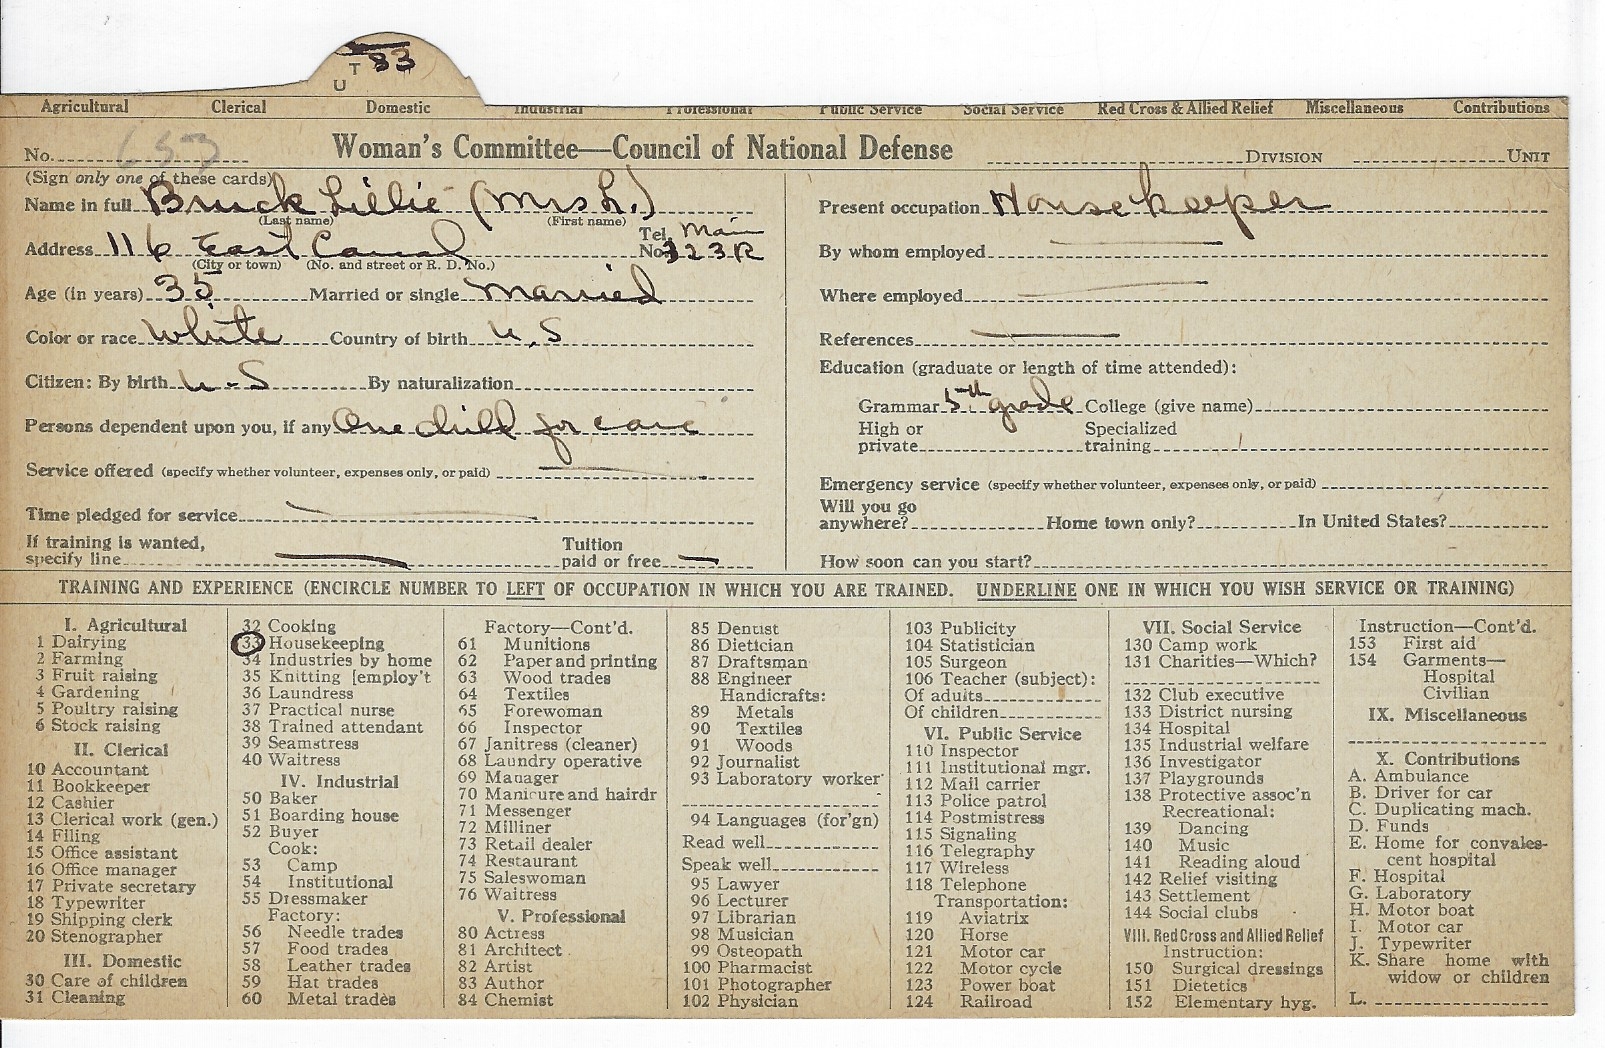 T 83
U
Agricultural Clerical Domestic Industrial Professional Public Service Social Service Red Cross & Allied Relief Miscellaneous Contributions
No. 653 Woman's Committee—Council of National Defense DIVISION UNIT
(Sign only one of these cards)
Name in full Bruck Lillie (Mrs L.)
(Last name) (First name)
Address 116 East Canal Tel. No. Main 323R
(City or town) (No. and street or R. D. No.)
Age (in years) 35 Married or single Married
Color or race White Country of birth U.S
Citizen: By birth U-S By naturalization
Persons dependent upon you, if any One child for care
Service offered (specify whether volunteer, expenses only, or paid)
Time pledged for service
If training is wanted, Tuition
specify line paid or free
Present occupation Housekeeper
By whom employed
Where employed
References
Education (graduate or length of time attended):
Grammar 5th grade College (give name)
High or Specialized
private training
Emergency service (specify whether volunteer, expenses only, or paid)
Will you go
anywhere? Home town only? In United States?
How soon can you start?
TRAINING AND EXPERIENCE (ENCIRCLE NUMBER TO LEFT OF OCCUPATION IN WHICH YOU ARE TRAINED. UNDERLINE ONE IN WHICH YOU WISH SERVICE OR TRAINING)
I. Agricultural
1 Dairying
2 Farming
3 Fruit raising
4 Gardening
5 Poultry raising
6 Stock raising
II. Clerical
10 Accountant
11 Bookkeeper
12 Cashier
13 Clerical work (gen.)
14 Filing
15 Office assistant
16 Office manager
17 Private secretary
18 Typewriter
19 Shipping clerk
20 Stenographer
III. Domestic
30 Care of children
31 Cleaning
32 Cooking
33 Housekeeping
34 Industries by home
35 Knitting [employ't
36 Laundress
37 Practical nurse
38 Trained attendant
39 Seamstress
40 Waitress
IV. Industrial
50 Baker
51 Boarding house
52 Buyer
Cook:
53 Camp
54 Institutional
55 Dressmaker
Factory:
56 Needle trades
57 Food trades
58 Leather trades
59 Hat trades
60 Metal trades
Factory—Cont'd.
61 Munitions
62 Paper and printing
63 Wood trades
64 Textiles
65 Forewoman
66 Inspector
67 Janitress (cleaner)
68 Laundry operative
69 Manager
70 Manicure and hairdr
71 Messenger
72 Milliner
73 Retail dealer
74 Restaurant
75 Saleswoman
76 Waitress
V. Professional
80 Actress
81 Architect
82 Artist
83 Author
84 Chemist
85 Dentist
86 Dietician
87 Draftsman
88 Engineer
Handicrafts:
89 Metals
90 Textiles
91 Woods
92 Journalist
93 Laboratory worker
94 Languages (for'gn)
Read well
Speak well
95 Lawyer
96 Lecturer
97 Librarian
98 Musician
99 Osteopath
100 Pharmacist
101 Photographer
102 Physician
103 Publicity
104 Statistician
105 Surgeon
106 Teacher (subject):
Of adults
Of children
VI. Public Service
110 Inspector
111 Institutional mgr.
112 Mail carrier
113 Police patrol
114 Postmistress
115 Signaling
116 Telegraphy
117 Wireless
118 Telephone
Transportation:
119 Aviatrix
120 Horse
121 Motor car
122 Motor cycle
123 Power boat
124 Railroad
VII. Social Service
130 Camp work
131 Charities—Which?
132 Club executive
133 District nursing
134 Hospital
135 Industrial welfare
136 Investigator
137 Playgrounds
138 Protective assoc'n
Recreational:
139 Dancing
140 Music
141 Reading aloud
142 Relief visiting
143 Settlement
144 Social clubs
VIII. Red Cross and Allied Relief
Instruction:
150 Surgical dressings
151 Dietetics
152 Elementary hyg.
Instruction—Cont'd.
153 First aid
154 Garments—
Hospital
Civilian
IX. Miscellaneous
X. Contributions
A. Ambulance
B. Driver for car
C. Duplicating mach.
D. Funds
E. Home for convales-
cent hospital
F. Hospital
G. Laboratory
H. Motor boat
I. Motor car
J. Typewriter
K. Share home with
widow or children
L.